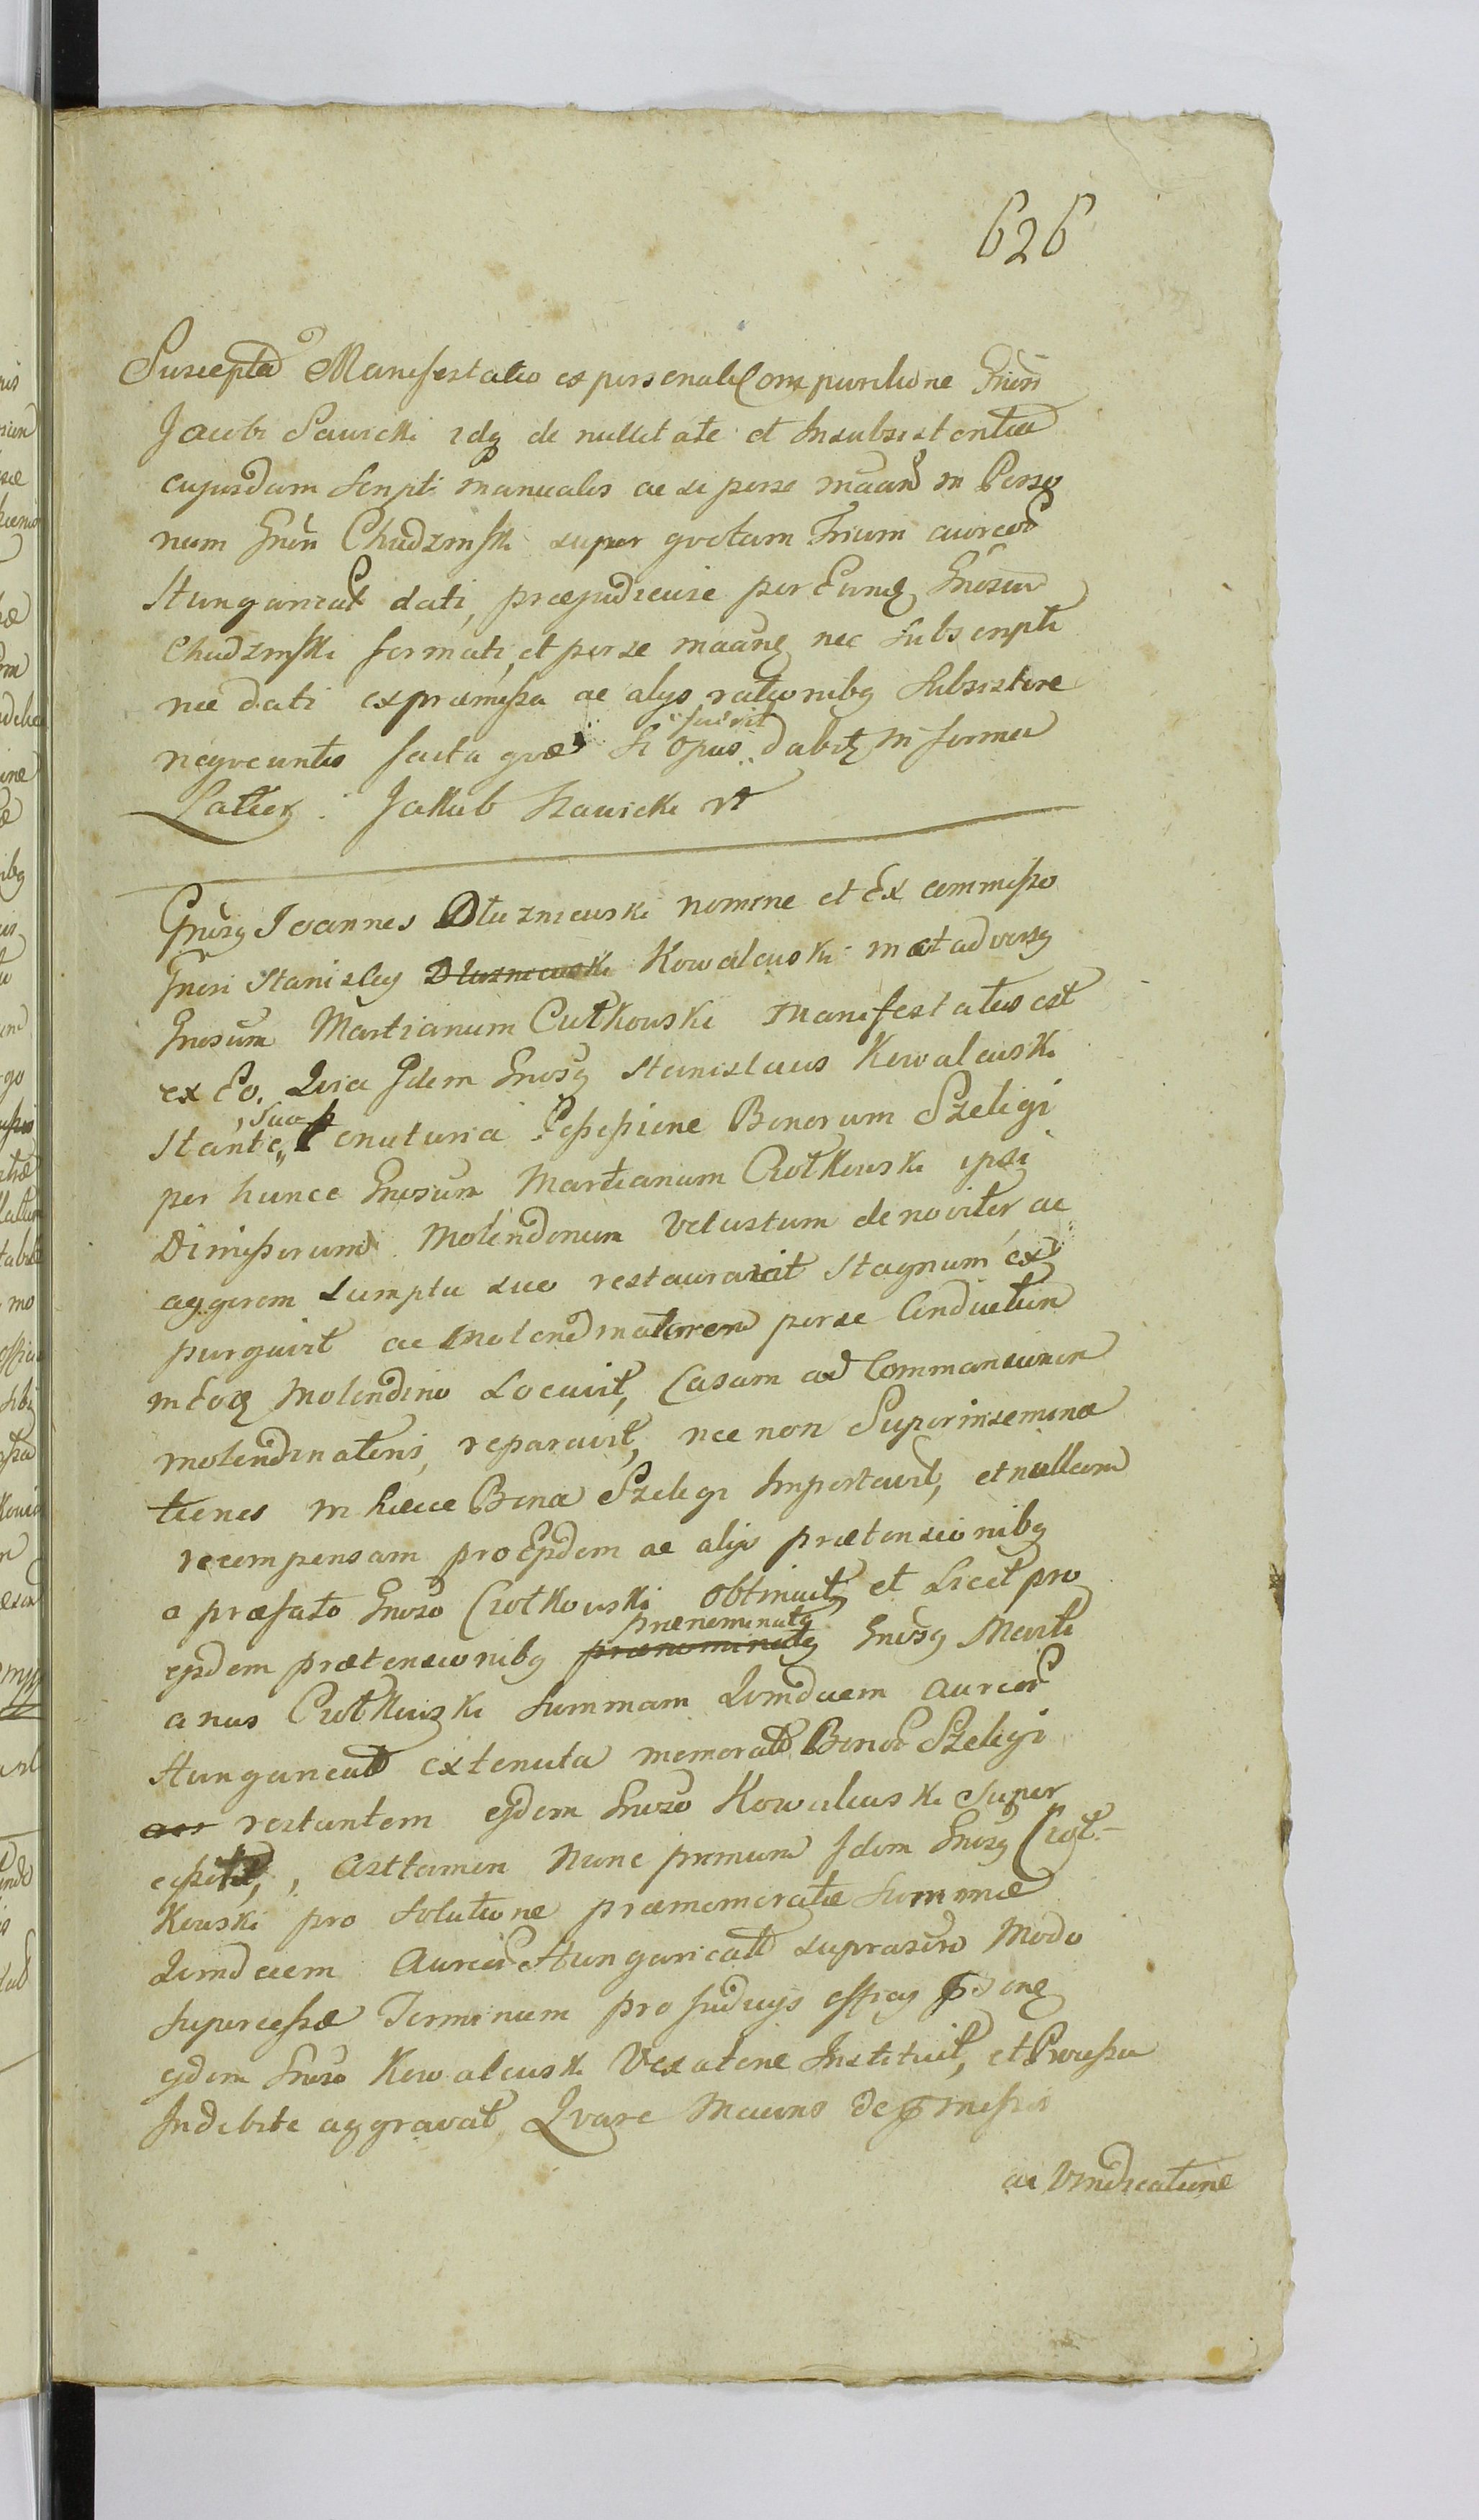 626
Suscepta Manifestatio ex personali Comparitione Gnsi
Jacobi Sawicki idq de nullitate et Insubsistentia
cujusdam scripti manualis ac si per se maan in Perso
nam Gnsi Chudzinski super qvotam Trium aureor
Hungaricał dati, præjudiciose per Eunq Gnosum
Chudzinski formati, et per se maanq nec subscripti
nec dati ex præmissa ac alys rationibq Subsistere
neqveuntis facta qvæ si opus fuerit dabitq in forma
Latiori Jakub Sawicki
Gnsq Joannes Dłuzniewski nomine et Ex commisso
Gnsi Stanislai Dłuzniewski Kowalewski in et adversq
Gnosum Martianum Ciołkowski Manifestatus est
ex Eo. Quia Idem Gnosq Stanislaus Kowalewski
stante sua tenutaria Possessione Bonorum Szeligi
per hunce Gnosum Martianum Ciołkowski ipsi
Dimissorum Molendinum Vetustum denoviter ac
aggerem sumptu suo restauravit Stagnum ex
purgavit ac Molendinatorem per se Conductum
in Eoq Molendino Locavit, Casam ad Commansionem
molendinatoris, reparavit, nec non Superinsemina
tiones in hæcce Bona Szeligi Importavit, et nullam
recompensam pro Ejsdem ac alijs prætensionibq
a præfato Gnoso Ciołkowski obtinuit, et Licet pro
ejsdem prætensionibq prænominatq prænominatq Gnosq Marti
anus Ciołkowski Summam Quindecim Aureor
Hungaricał ex tenuta memorat Bonor Szeligi
aor restantem ejdem Gnoso Kowalewski super
cessit, asttamen Nunc primum Idem Gnosq Cioł-
kowski pro Solutione præmemoratæ Summæ
Quindecim Aureor Hungaricał suprascro Modo
supercessæ Terminum pro Judicys
ejdem Gnoso Kowalewski Vexatione Instituit, et Processu
Indebite aggravat, Qvare Maans de pmissis
ac Vindicatione